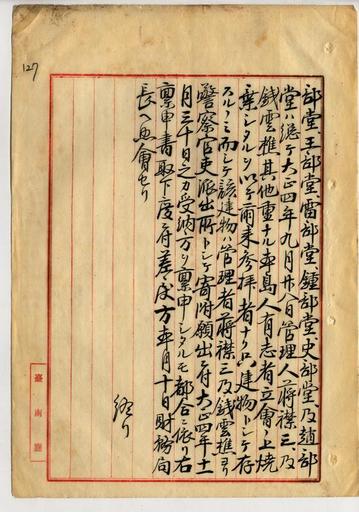 127
部堂王部堂雷部堂鍾部堂史部堂及趙部
堂ハ總テ大正四年九月廿八日管理人蔣襟三及
錢雲樵其他重ナル本島人有志者立會ノ上燒
棄シタルヲ以テ爾来參拜者ナク只建物トシテ存
スルノミニシテ該建物ハ管理者蔣襟三及錢雲樵ヨリ
警察官吏派出所トシテ寄附願出有大正四年十一
月三十日之カ受納方ヲ稟申シタルモ都合ニ依リ右
稟申書取下度有 方本月十日財務局
長ヘ照會セリ
終リ
臺南廳